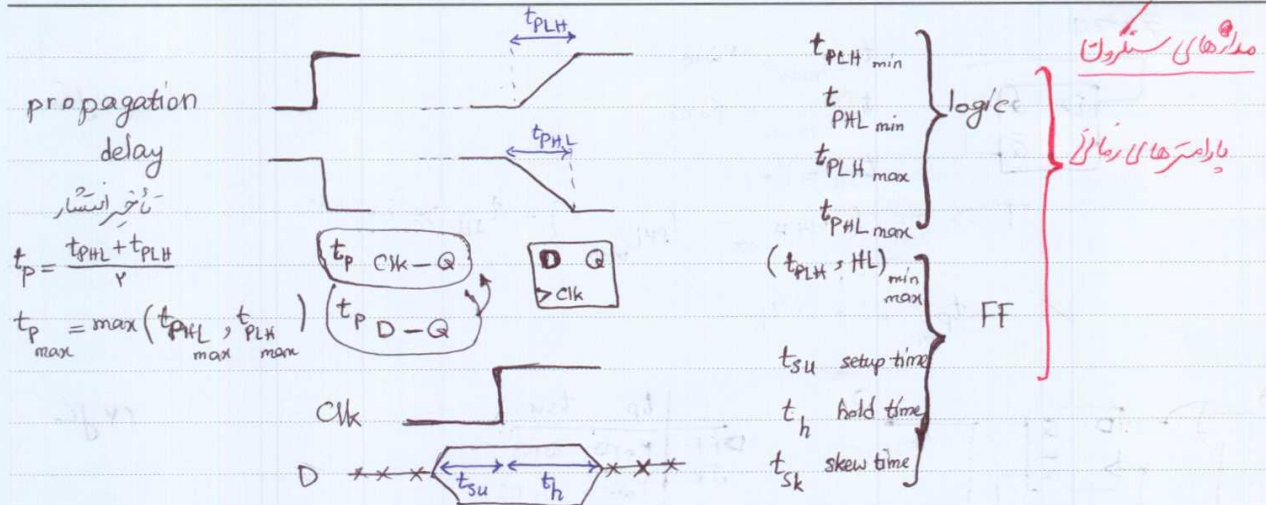 مدارهای سنکرون
پارامترهای زمانی
propagation
delay
تأخیر انتشار
t_PLH
t_PHL
t_P = (t_PHL + t_PLH) / ۲
t_P max = max (t_PHL max , t_PLH max)
t_P Clk - Q
t_P D - Q
D Q
> Clk
t_PLH min
t_PHL min
t_PLH max
t_PHL max
logic
(t_PLH , HL) min max
t_su setup time
t_h hold time
t_sk skew time
FF
Clk
D
t_su t_h